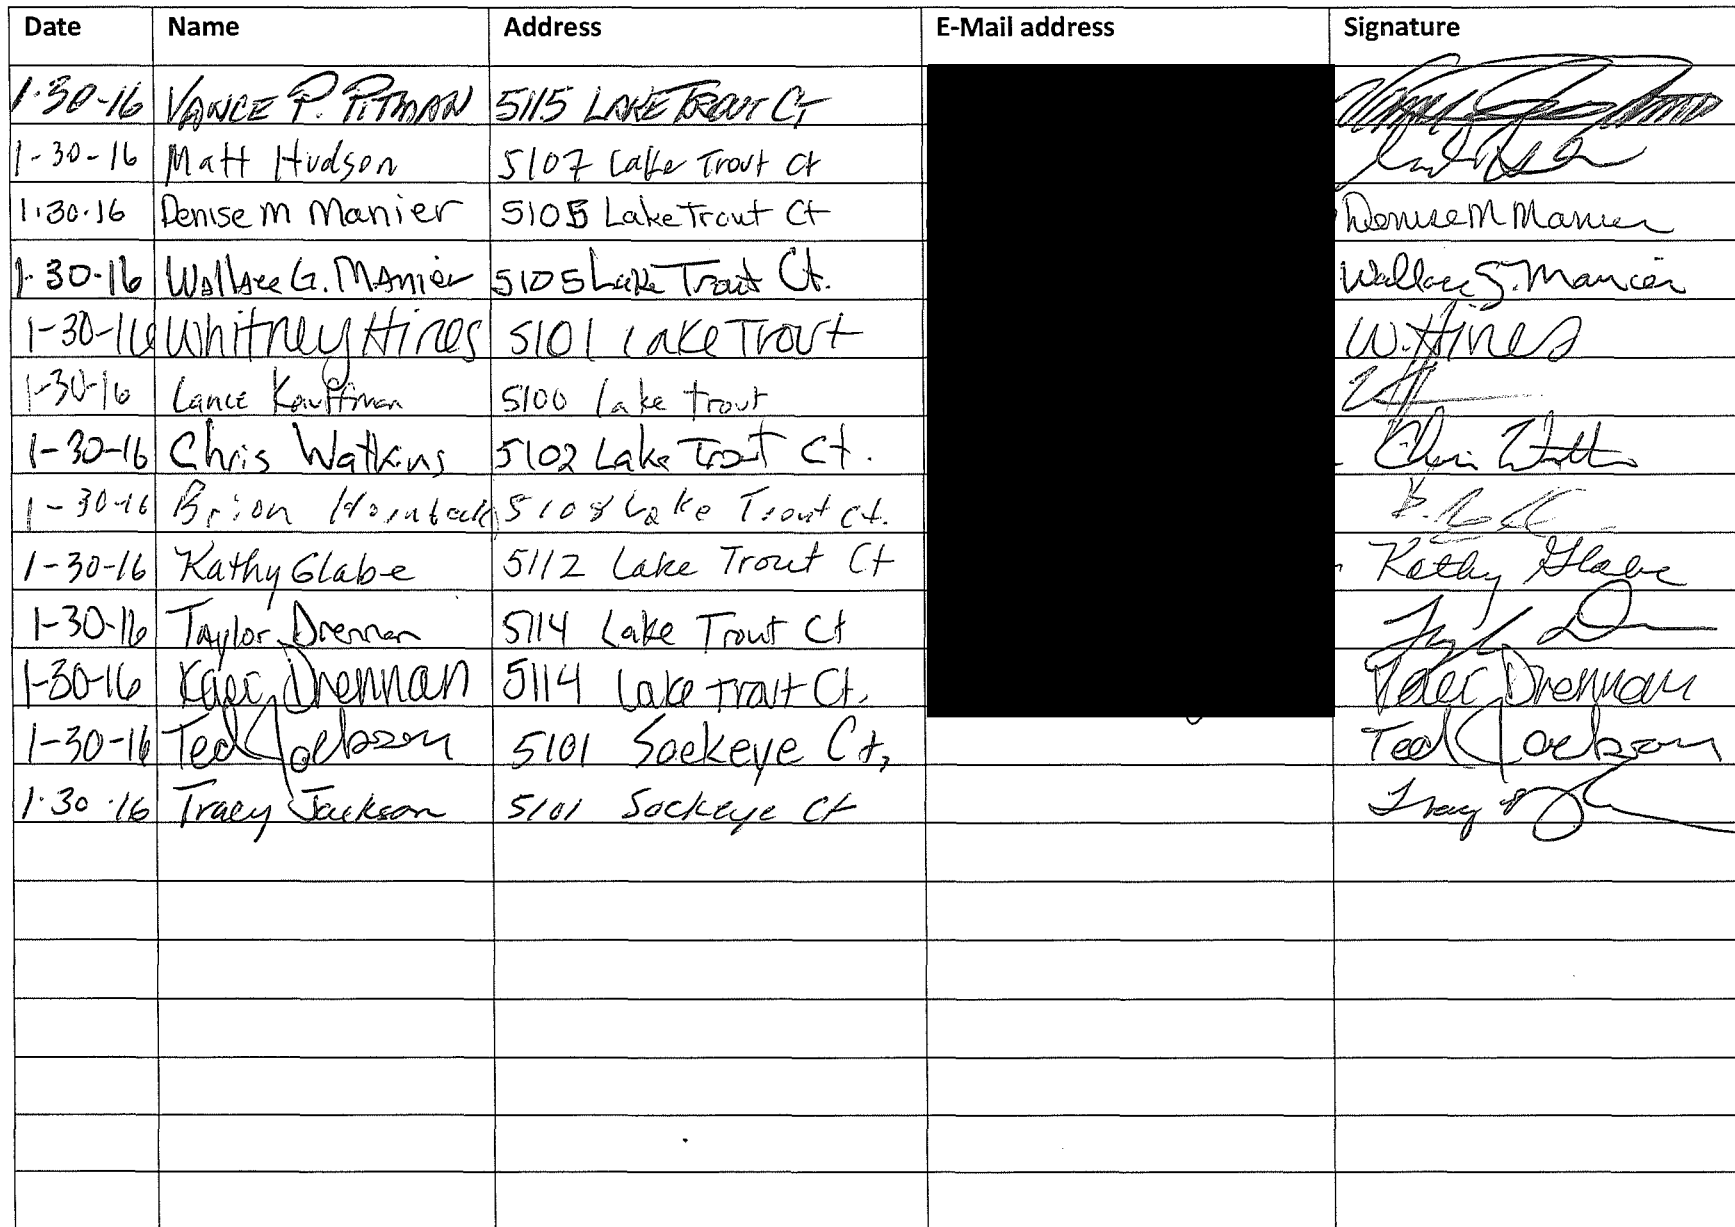 Date Name Address E-Mail address Signature
1-30-16 VANCE P. PITMAN 5115 LAKE TROUT CT
1-30-16 Matt Hudson 5107 Lake Trout Ct
1.30.16 Denise M Manier 5105 Lake Trout Ct Denise M Manier
1-30-16 Wallace G. Manier 5105 Lake Trout Ct. Wallace G. Manier
1-30-16 Whitney Hines 5101 Lake Trout W. Hines
1-30-16 Lance Kauffman 5100 Lake Trout
1-30-16 Chris Watkins 5102 Lake Trout Ct. Chris
1-30-16 Brian 5108 Lake Trout Ct.
1-30-16 Kathy Glabe 5112 Lake Trout Ct Kathy Glabe
1-30-16 Taylor Drennan 5114 Lake Trout Ct
1-30-16 Drennan 5114 Lake Trout Ct. Drennan
1-30-16 Ted Jackson 5101 Sockeye Ct, Ted Jackson
1.30.16 Tracy Jackson 5101 Sockeye Ct Tracy